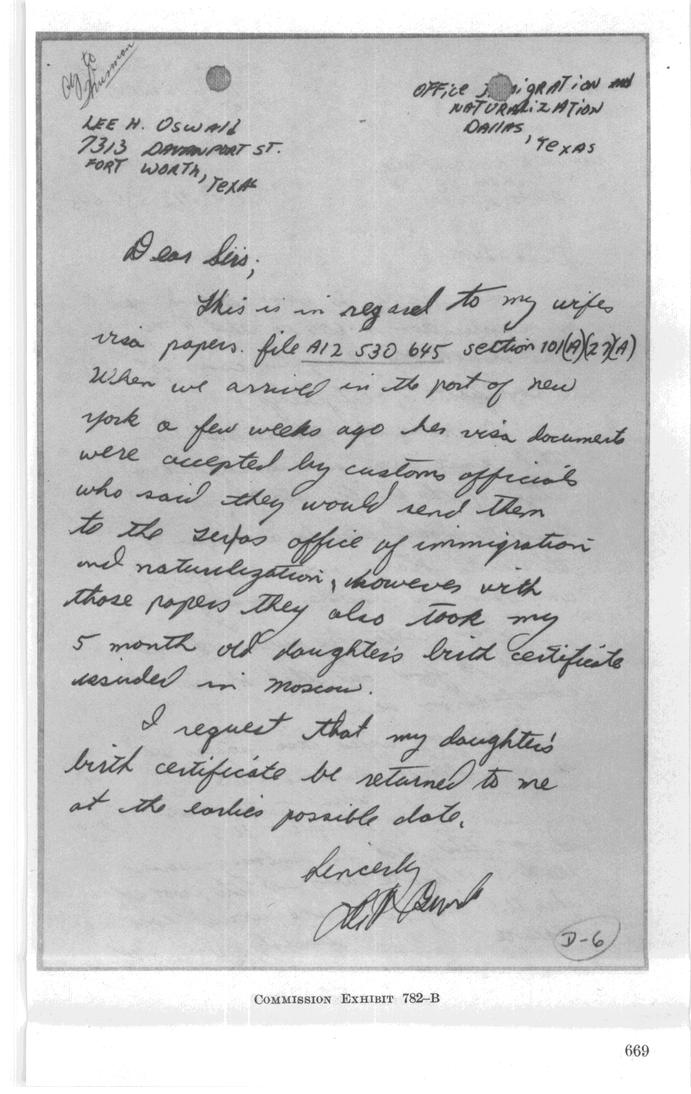 to
LEE H. OSWALD
7313 DAVENPORT ST.
FORT WORTH, TEXAS
OFFICE IMMIGRATION and
NATURALIZATION
DALLAS,
TEXAS
Dear Sirs;
This is in regard to my wifes
visa papers. file A12 530 645 section 101(A)(27)(A)
When we arrived in the port of new
york a few weeks ago her visa documents
were accepted by customs officials
who said they would send them
to the office of immigration
and naturilization, however with
those papers they also took my
5 month old daughter's birth certificate
issuded in Moscow.
I request that my daughter's
birth certificate be returned to me
at the earlies possible date.
Sincerly
D-6
COMMISSION EXHIBIT 782–B
669